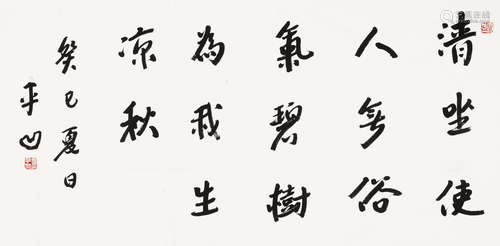 清坐使
人無俗
氣碧樹
為我生
凉秋
癸巳夏日
平凹